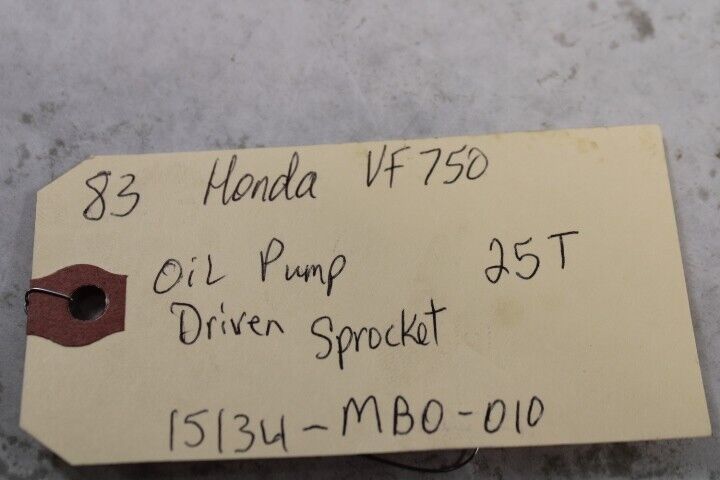 83 Honda VF750
Oil Pump 25T
Driven Sprocket
15134-MB0-010